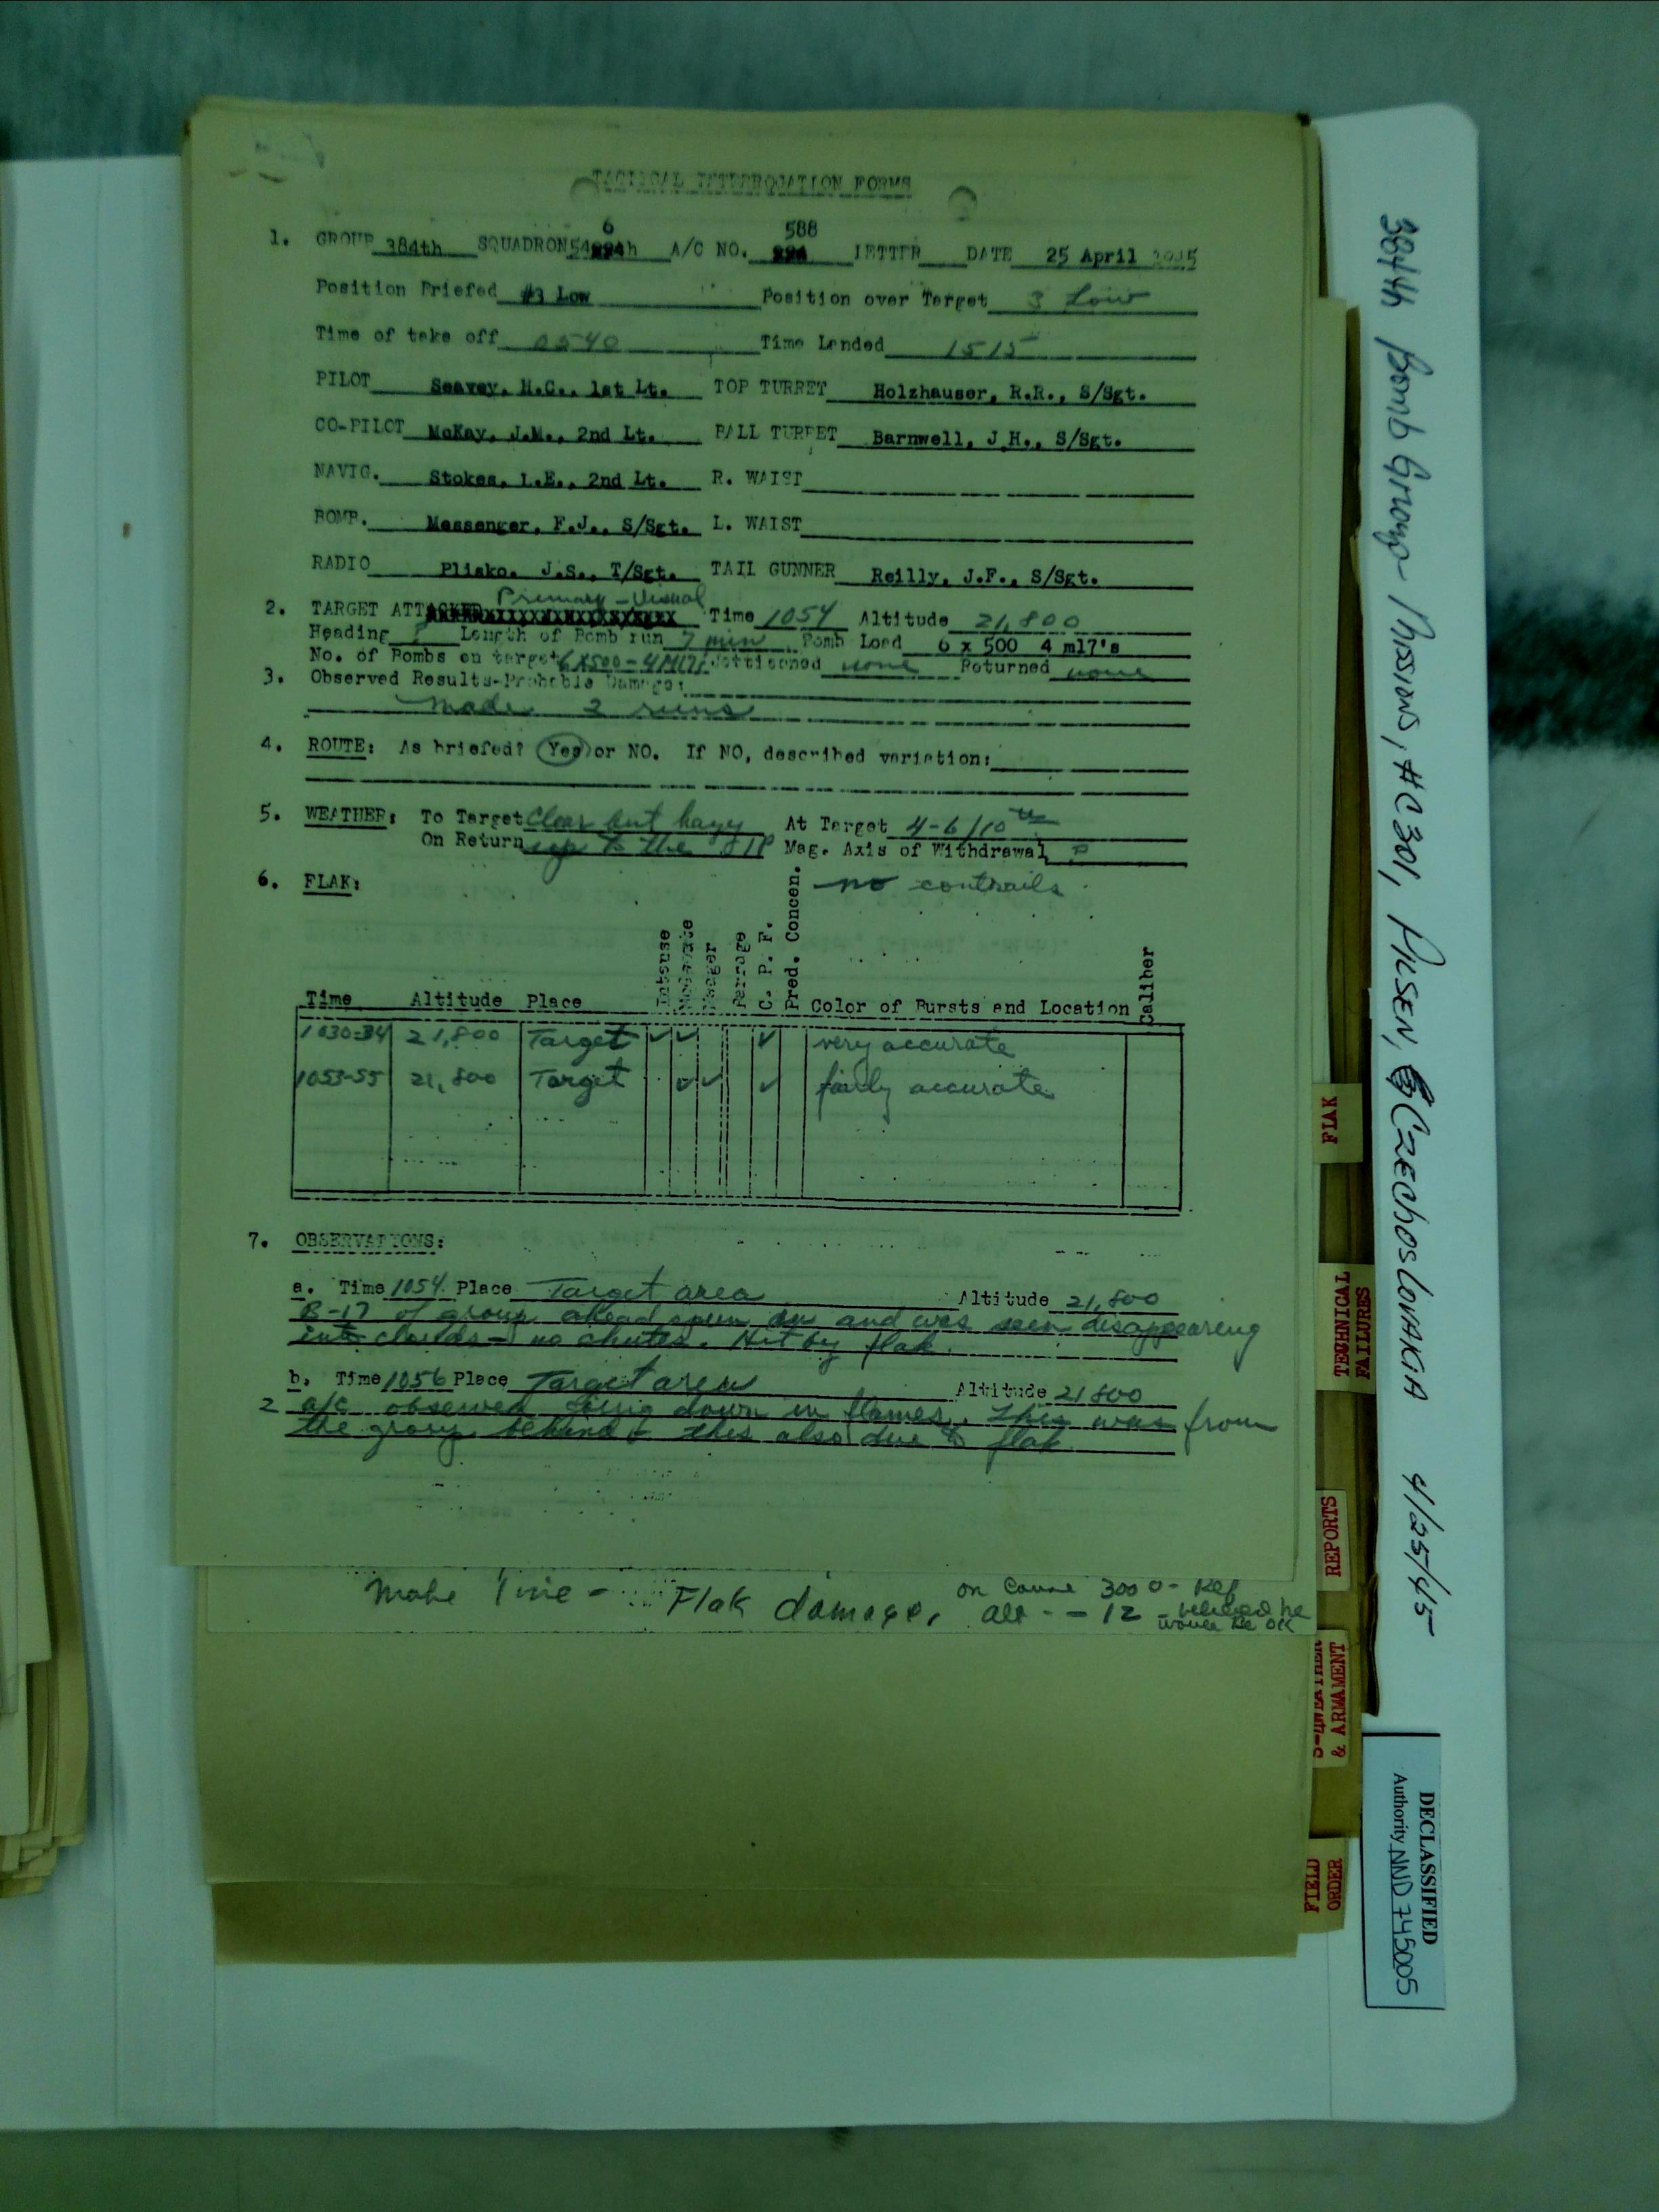 TACTICAL INTERROGATION FORMS
6 588
1. GROUP 384th SQUADRON 54 th A/C NO. LETTER DATE 25 April 1945
Position Briefed #3 Low Position over Target 3 Low
Time of take off 0540 Time Landed 1515
PILOT Seavey, H.C., 1st Lt. TOP TURRET Holzhauser, R.R., S/Sgt.
CO-PILOT McKay, J.M., 2nd Lt. BALL TURRET Barnwell, J.H., S/Sgt.
NAVIG. Stokes, L.E., 2nd Lt. R. WAIST
BOMB. Messenger, F.J., S/Sgt. L. WAIST
RADIO Plisko, J.S., T/Sgt. TAIL GUNNER Reilly, J.F., S/Sgt.
Primary - Visual
2. TARGET ATTACKED Time 1054 Altitude 21,800
Heading ? Length of Bomb run 7 min Bomb Load 6 x 500 4 m17's
No. of Bombs on target 6x500 - 4M17s Jettisoned none Returned none
3. Observed Results-Probable Damage:
made 2 runs
4. ROUTE: As briefed? Yes or NO. If NO, described variation:
5. WEATHER: To Target Clear but hazy At Target 4-6/10 ths
On Return up to the Mag. Axis of Withdrawal ?
6. FLAK: no contrails
Intense Moderate Meager Barrage C. P. F. Pred. Concen.
Time Altitude Place Color of Bursts and Location Caliber
1030-34 21,800 Target ✓ ✓ ✓ very accurate
1053-55 21,800 Target ✓ ✓ ✓ fairly accurate
7. OBSERVATIONS:
a. Time 1054 Place Target area Altitude 21,800
B-17 of group ahead spun in and was seen disappearing
into clouds - no chutes. Hit by flak.
b. Time 1056 Place Target area Altitude 21800
2 a/c observed going down in flames. This was from
the group behind & this also due to flak
Make Flak damage, on 3000 -
alt - - 12 - believed he
would be OK
384th Bomb Group Missions, #C301, PILSEN, CZECHOSLOVAKIA 4/25/45
FLAK
TECHNICAL
FAILURES
REPORTS
S-WEATHER
& ARMAMENT
FIELD
ORDER
DECLASSIFIED
Authority NND 745005